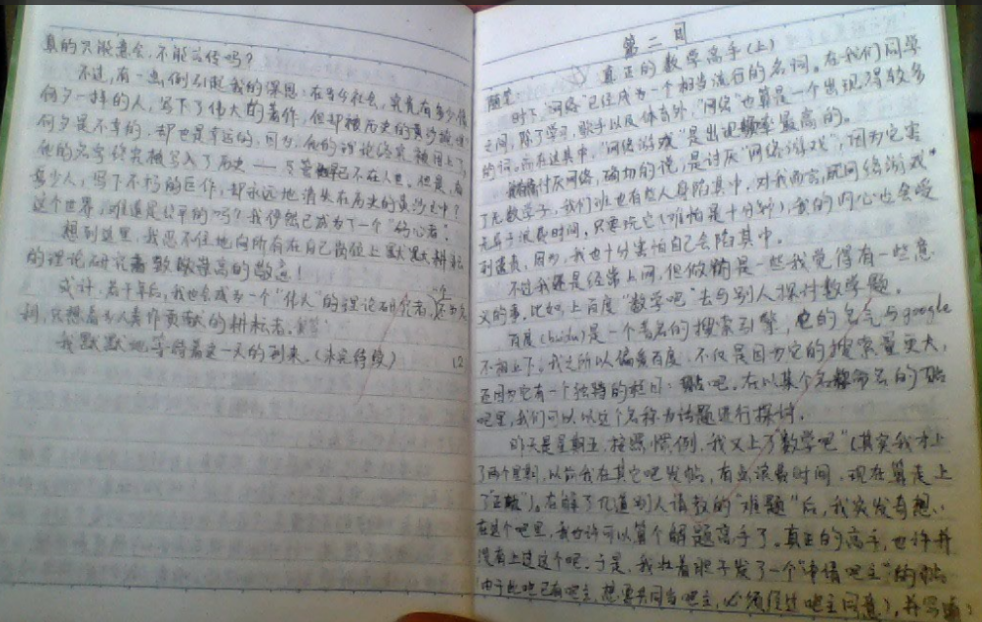 真的只能意会，不能言传吗？
不过，有一幽例引起我的深思：在当今社会，究竟有多少像
何夕一样的人，写下了伟大的著作，但却被历史的黄沙淹
何夕是不幸的，却也是幸运的，因为，他的理论终究被用上了，
他的名字终究被写入了历史——尽管他早已不在人世。但是，有
多少人，写下不朽的巨作，却永远地消失在历史的黄沙之中？
这个世界，难道是公平的吗？我俨然已成为了一个
想到这里，我忍不住地向所有在自己岗位上默默耕耘
的理论研究者致敬崇高的敬意！
或许，若干年后，我也会成为一个"伟大"的理论研究者，不为名
利，只想着为人类作贡献的耕耘者。
我默默地等待着这一天的到来。（未完待续） 12
第二回
真正的数学高手（上）
随笔
时下，"网络"已经成为一个相当流行的名词。在我们同学
之间，除了学习，歌手以及体育外，"网络"也算是一个出现得较多
的词。而在这其中，"网络游戏"是出现频率最高的。
我讨厌网络，确切的说，是讨厌"网络游戏"，因为它害
了无数学子，我们班也有些人身陷其中，对我而言，玩网络游戏
无异于浪费时间，只要玩它（哪怕是十分钟），我的内心也会受
到谴责，因为，我也十分害怕自己会陷其中。
不过我还是经常上网，但做的是一些我觉得有一些意
义的事，比如上百度"数学吧"去与别人探讨数学题。
百度（baidu）是一个著名的搜索引擎，它的名气与google
不相上下。我之所以偏爱百度，不仅是因为它的搜索量更大，
还因为它有一个独特的栏目：贴吧。在以某个名称命名的贴
吧里，我们可以以这个名称为话题进行探讨。
昨天是星期五，按照惯例，我又上了"数学吧"（其实我才上
了两个星期，以前我在其它吧发帖，有点浪费时间，现在算走上
了"正融"）。在解了几道别人请教的"难题"后，我突发奇想：
在这个吧里，我也许可以算个解题高手了。真正的高手，也许并
没有上过这个吧。于是，我壮着胆子发了一个"申请吧主"的帖
由于此吧已有吧主，想要共同当吧主，必须经过吧主同意），并写道：